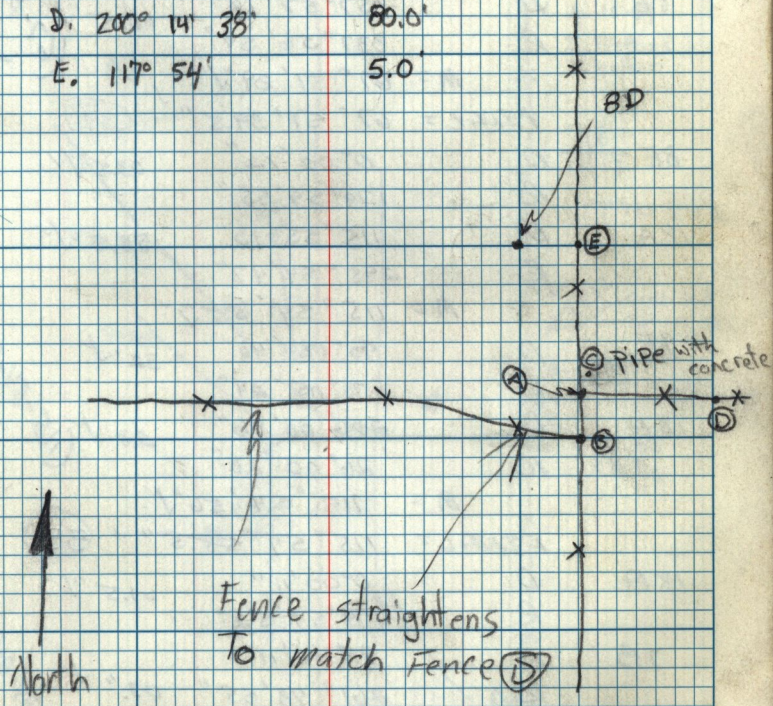 D. 200° 14' 38" 80.0'
E. 117° 54' 5.0'
8D
E
C pipe with
concrete
A
D
B
Fence straightens
To match Fence D
North